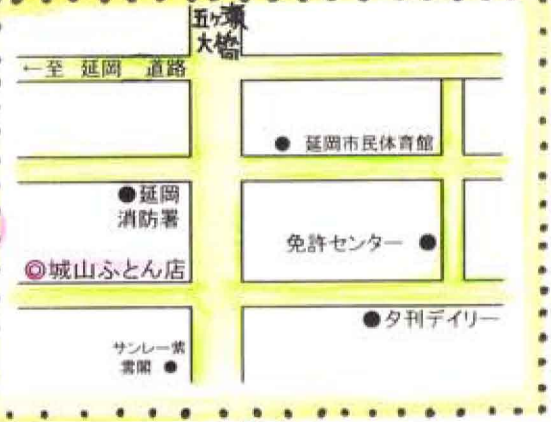 五ヶ瀬
大橋
←至 延岡 道路
● 延岡市民体育館
●延岡
消防署
免許センター ●
◎城山ふとん店
●夕刊デイリー
サンレー紫
雲閣 ●